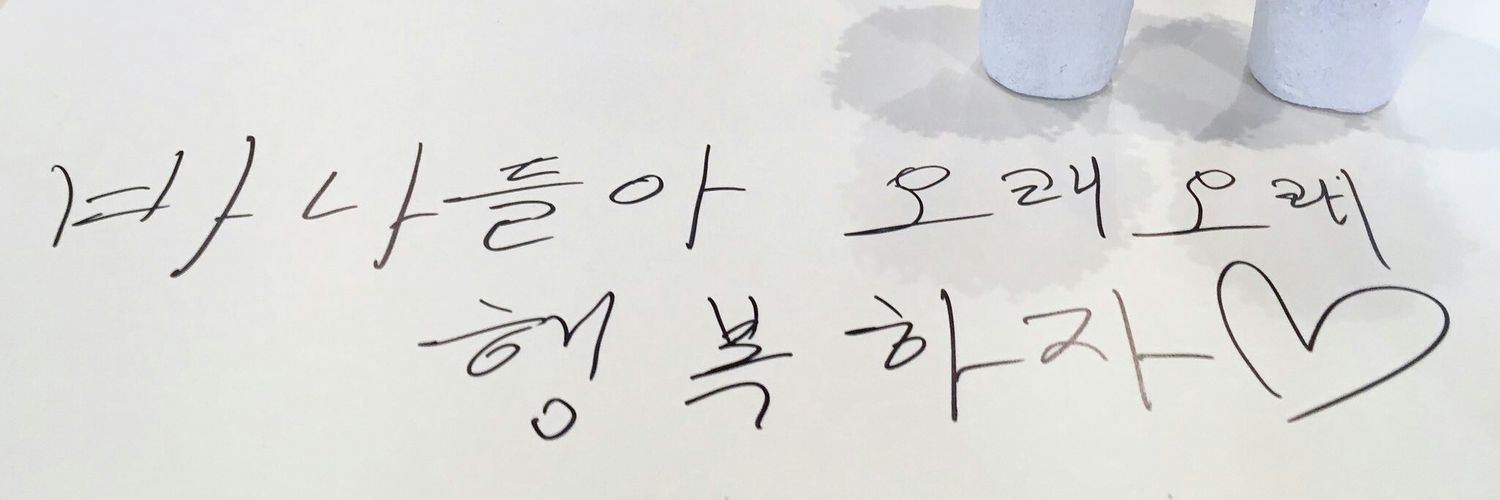 바나들아 오래오래
행복하자♡